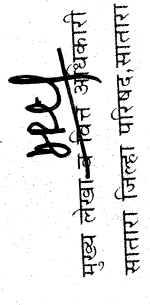 मुख्य लेखा व वित्त अधिकारी
सातारा जिल्हा परिषद, सातारा